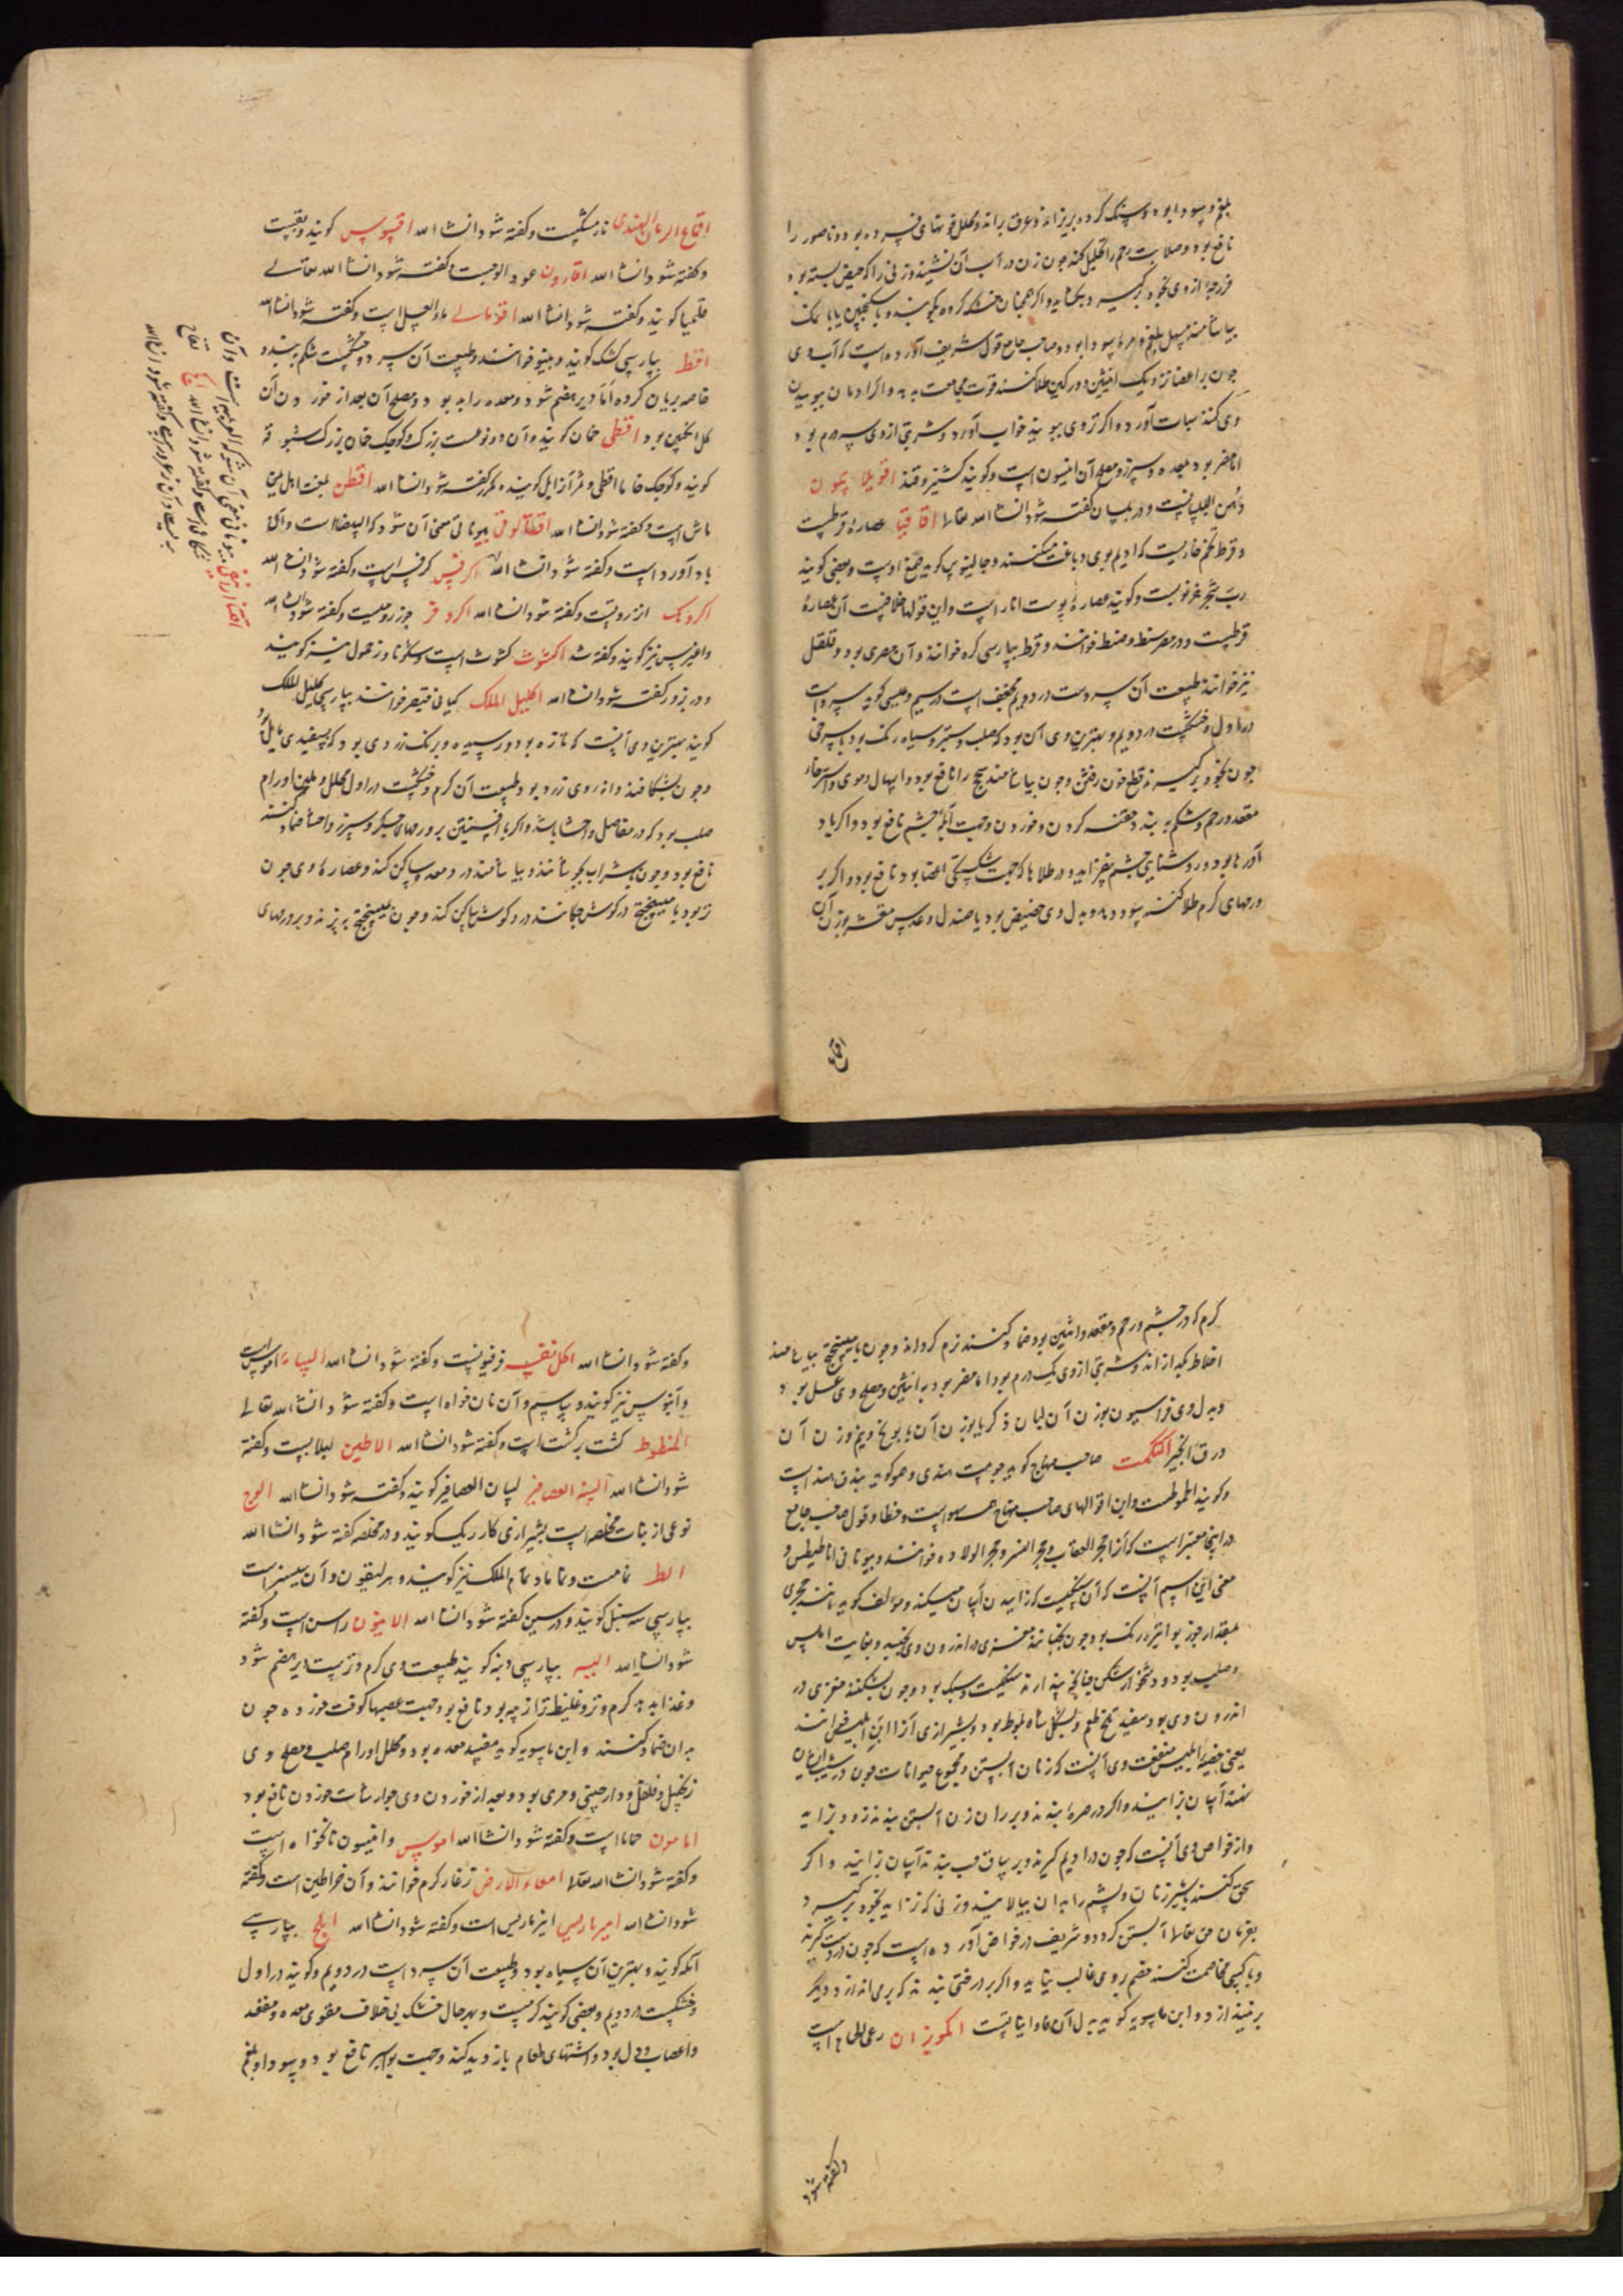 بلغم و سودا بود و سنک کرده بریزاند و عرق براند و محلل خونهای فسرده بود و ناصور را
نافع بود و صلابت رحم را تحلیل کند چون زن در آب آن نشیند و زنی را که حیض بسته بود
فرزجه از وی بخود برکیرد بکشاید و اکر همچنان خشک کرده بکوبند و با سکنجبین یا با نمک
بیاشامند مسهل بلغم و مره سودا بود و صاحب جامع قول شریف آورده است که آب وی
چون بر اعضا نزدیک انثیین و در کین طلا کنند قوت مجامعت بدهد و اکر ادمان بوییدن
وی کنند سبات آورد و اکر تر وی ببویند خواب آورد و شربتی از وی سه درم بود
اما مضر بود بمعده و سپرز و مصلح آن انیسون است و کویند کشنیز و قند اقویلاسمون
دهن البلسانست و در بلسان کفته شود انشا الله تعالی اقاقیا عصاره قرظست
و قرظ تخم خاریست که ادیم بوی دباغت میکنند و جالینوس کوید صمغ اوست و بعضی کویند
رب شجر غرنوبست و کویند عصاره پوست انار است و این قولها خلافست آن عصاره
قرظست و در مصر سنط و صنط خوانند و قرظ بپارسی کره خوانند و آن مصری بود و قلقل
نیز خوانند طبیعت آن سردست در دویم مجفف است در سیم و عیسی کوید سرد است
در اول و خشکست در دویم و بهترین وی آن بود که صلب و ستبر و سیاه رنک بود با سرخی
چون بخود برکیرند قطع خون رفتن و چون بیاشامند سحج را نافع بود و اسهال دموی و استرخاء
مقعد و رحم و شکم ببندد حقنه کردن و خوردن و جهت آبله چشم نافع بود و اکر باد
آورها بود و روشنایی چشم بیفزاید و در طلاها که جهت شکستکی اعضا بود نافع بود و اکر بر
ورمهای کرم طلا کنند سود دهد و بدل وی حضیض بود یا صندل و عدس مقشر بوزن آن
اقماع
اقماع الرمان الهندی نارمشکست و کفته شود انشا الله اقسوس کویند دبقست
و کفته شود انشا الله اقارون عود الوجست و کفته شود انشا الله تعالی
قلمیا کویند و کفته شود انشا الله اقومالی ماء العسل است و کفته شود انشا الله
اقط بپارسی کشک کویند و پینو خوانند و طبیعت آن سرد و خشکست شکم ببندد و
خاصه بریان کرده اما دیر هضم شود و معده را بد بود و مصلح آن بعد از خوردن آن
کل انکبین بود اقطی خمان کویند و آن دو نوعست بزرک و کوجک خمان بزرک شبوقه
کویند و کوجک خاما اقطی و مر آنرا یل کویند مکرر کفته شود انشا الله اقطن بلغت اهل یمن
ماش است و کفته شود انشا الله اقنثالوقی بیونانی معنی آن شوکه البیضا است و آن
بادآورد است و کفته شود انشا الله اکرفس کرفس است و کفته شود انشا الله
اکروبک ازروتست و کفته شود انشا الله اکردقر جوز رومیست و کفته شود انشا الله
و اغیرس نیز کویند و کفته شد اکشوث کشوث است و سکوثا و زحمول نیز کویند
و در بزور کفته شود انشا الله اکلیل الملک کیانی قیصر خوانند بپارسی اکلیل الملک
کویند بهترین وی آنست که تازه بود و رسیده و برنک زردی بود که بسفیدی مایل بود
و چون بشکافند دانه وی زرد بود و طبیعت آن کرم و خشکست در اول محلل و ملین اورام
صلب بود که در مفاصل و احشا باشد و اکر با افسنتین بر ورمهای جکر و سپرز و احشا ضماد کنند
نافع بود و چون با شراب بجوشانند و بیاشامند درد معده ساکن کند و عصاره وی چون
تر بود با میبختج در کوش چکانند درد کوش ساکن کند و چون با میبختج بپزند و بر ورمهای
کرم که در چشم و رحم و مقعد و انثیین بود ضماد کنند نرم کرداند و چون با میبختج بیاشامند
اخلاط بکدازاند و شربتی از وی یک درم بود اما مضر بود به انثیین و مصلح وی عسل بود
و بدل وی فراسیون بوزن آن لبان ذکر یا بوزن آن بابونج و نیم وزن آن
ورق انجیر اکتمکت صاحب منهاج کوید جوهریست هندی و هموکوید بندق هنداست
و کویند اطموطست و این اقوالهای صاحب منهاج همه سهو است و خطا و قول صاحب جامع
در اینجا معتبر است که آنرا حجر العقاب و حجر النسر و حجر الولاده خوانند و بیونانی اناطیطس و
معنی این اسم آنست که آن سنکیست که زاییدن آسان میکند و مولف کوید مانند حجری
بمقدار جوز بوا تیره رنک بود و چون بجنبانند مغزی در اندرون وی بجنبد و بغایت املس
و صلب بود و دشخوار شکن چنانچه پندارند سنکیست و سبک بود و چون بشکنند مغزی در
اندرون وی بود سفید تلخ طعم و بشکل شاه بلوط بود و بشیرازی آنرا ابن ابلیس خوانند
یعنی خصیه ابلیس منفعت وی آنست که زنان آبستن و مجموع حیوانات چون در شیب ایشان
نهند آسان بزایند و اکر در صره بندند و بر ران زن آبستن بندند زود بزاید
و از خواص وی آنست که چون در ادیم کیرند و بر ساق چپ بندند آسان زاید و اکر
سحق کنند با شیر زنان و پشم را بدان بیالایند و زنی که نزاید بخود برکیرد
بفرمان حق تعالی آبستن کردد و شریف در خواص آورده است که چون در دست کیرند
و با کسی مخاصمت کنند خصم بر وی غالب نیاید و اکر بر درختی بندند که بر می اندازد دیکر
بر نیندازد و ابن ماسویه کوید بدل آن فاوانیاست اکموبزان رعی الحمام است
و کفته شود
و کفته شود انشا الله اکل نفسه فرفیونست و کفته شود انشا الله البساء اموس است
و آنموس نیز کویند و بسیم و آن نان خواه است و کفته شود انشا الله تعالی
المنطوط کشت برکشت است و کفته شود انشا الله الاطین لبلابست و کفته
شود انشا الله السنه العصافیر لسان العصافیر کویند و کفته شود انشا الله الوج
نوعی از نبات مخلصه است بشیرازی کارریک کویند و در مخلصه کفته شود انشا الله
الط نمامست و نماماد و نمام الملک نیز کویند و هرلیقون و آن سیسنبر است
بپارسی سه سنبل کویند و در سین کفته شود انشا الله الانیون راسن است و کفته
شود انشا الله الیه بپارسی دنبه کویند طبیعت وی کرم و تر است دیر هضم شود
و غذا بد دهد کرم و تر و غلیظ تر از پیه بود نافع بود جهت عصبها کوفت خورده چون
بدان ضماد کنند و ابن ماسویه کوید مفسد معده بود و محلل اورام صلب و مصلح وی
زنجبیل و فلفل و دارچینی و مری بود و بعد از خوردن وی جوارشات خوردن نافع بود
امامون حماما است و کفته شود انشا الله اموس و انیسون نانخواه است
و کفته شود انشا الله تعالی امعاء الارض زغار کرم خوانند و آن خراطین است و کفته
شود انشا الله امیرباریس انبرباریس است و کفته شود انشا الله املج بپارسی
آمله کویند و بهترین آن سیاه بود و طبیعت آن سرد است در دویم و کویند در اول
و خشکست در دویم و بعضی کویند کرمست و بهر حال خشک بی خلاف مقوی معده و مقعد
و اعصاب و دل بود و اشتهای طعام بازدید کند و جهت بواسیر نافع بود و سودا و بلغم